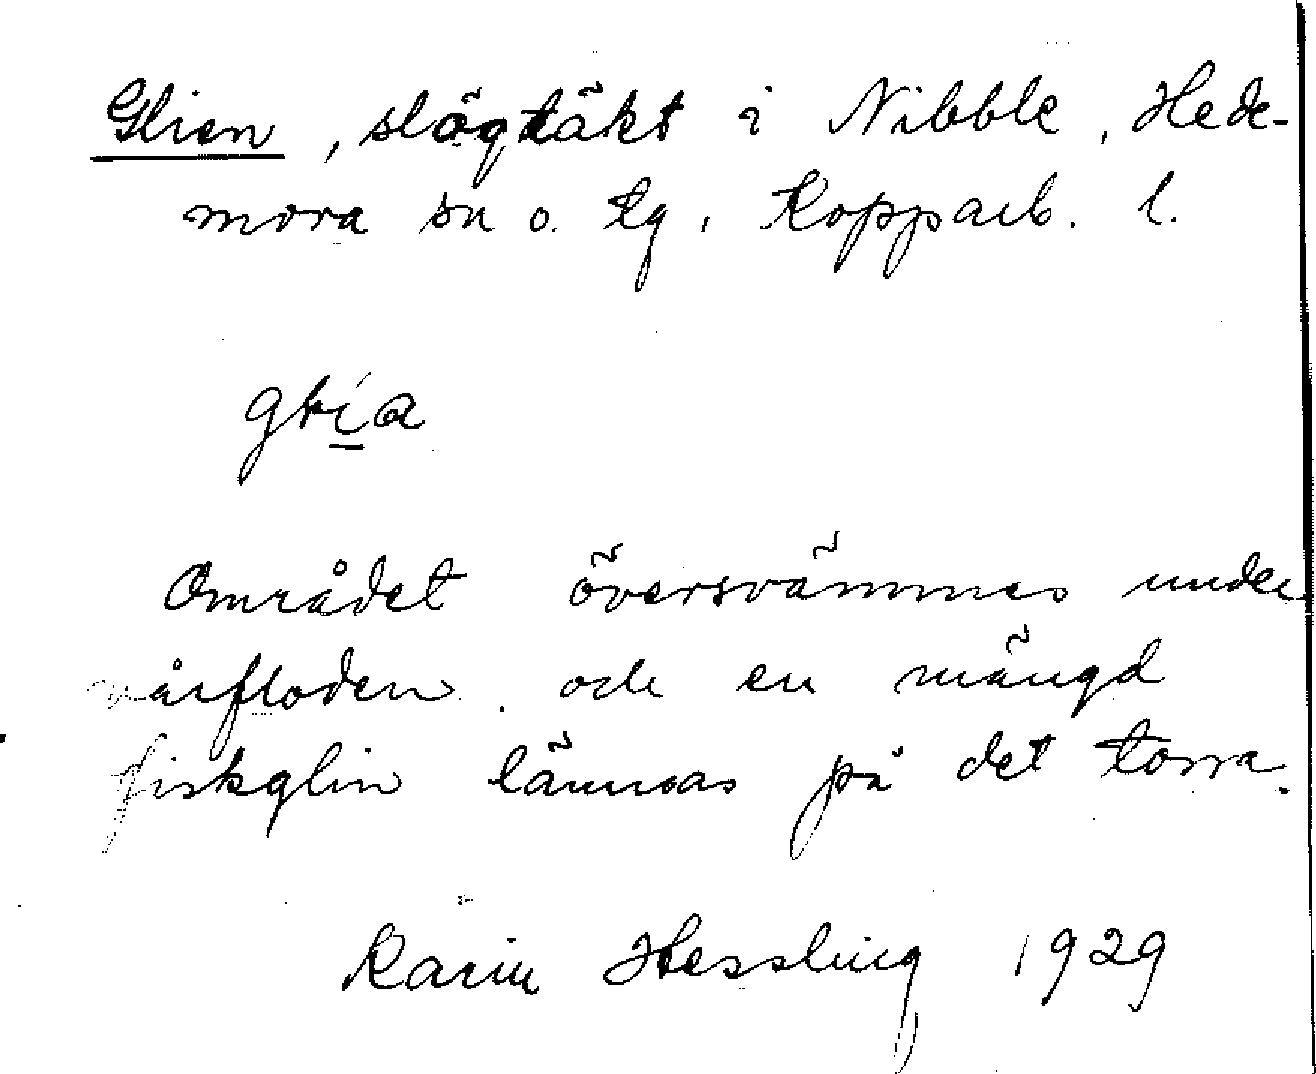 Glien, slogtäkt i Nibble, Hede-
mora sn o. tg, Kopparb. l.
glia
Området översvämmes under
vårfloden och en mängd
fiskglin lämnas på det torra.
Karin Hessling 1929